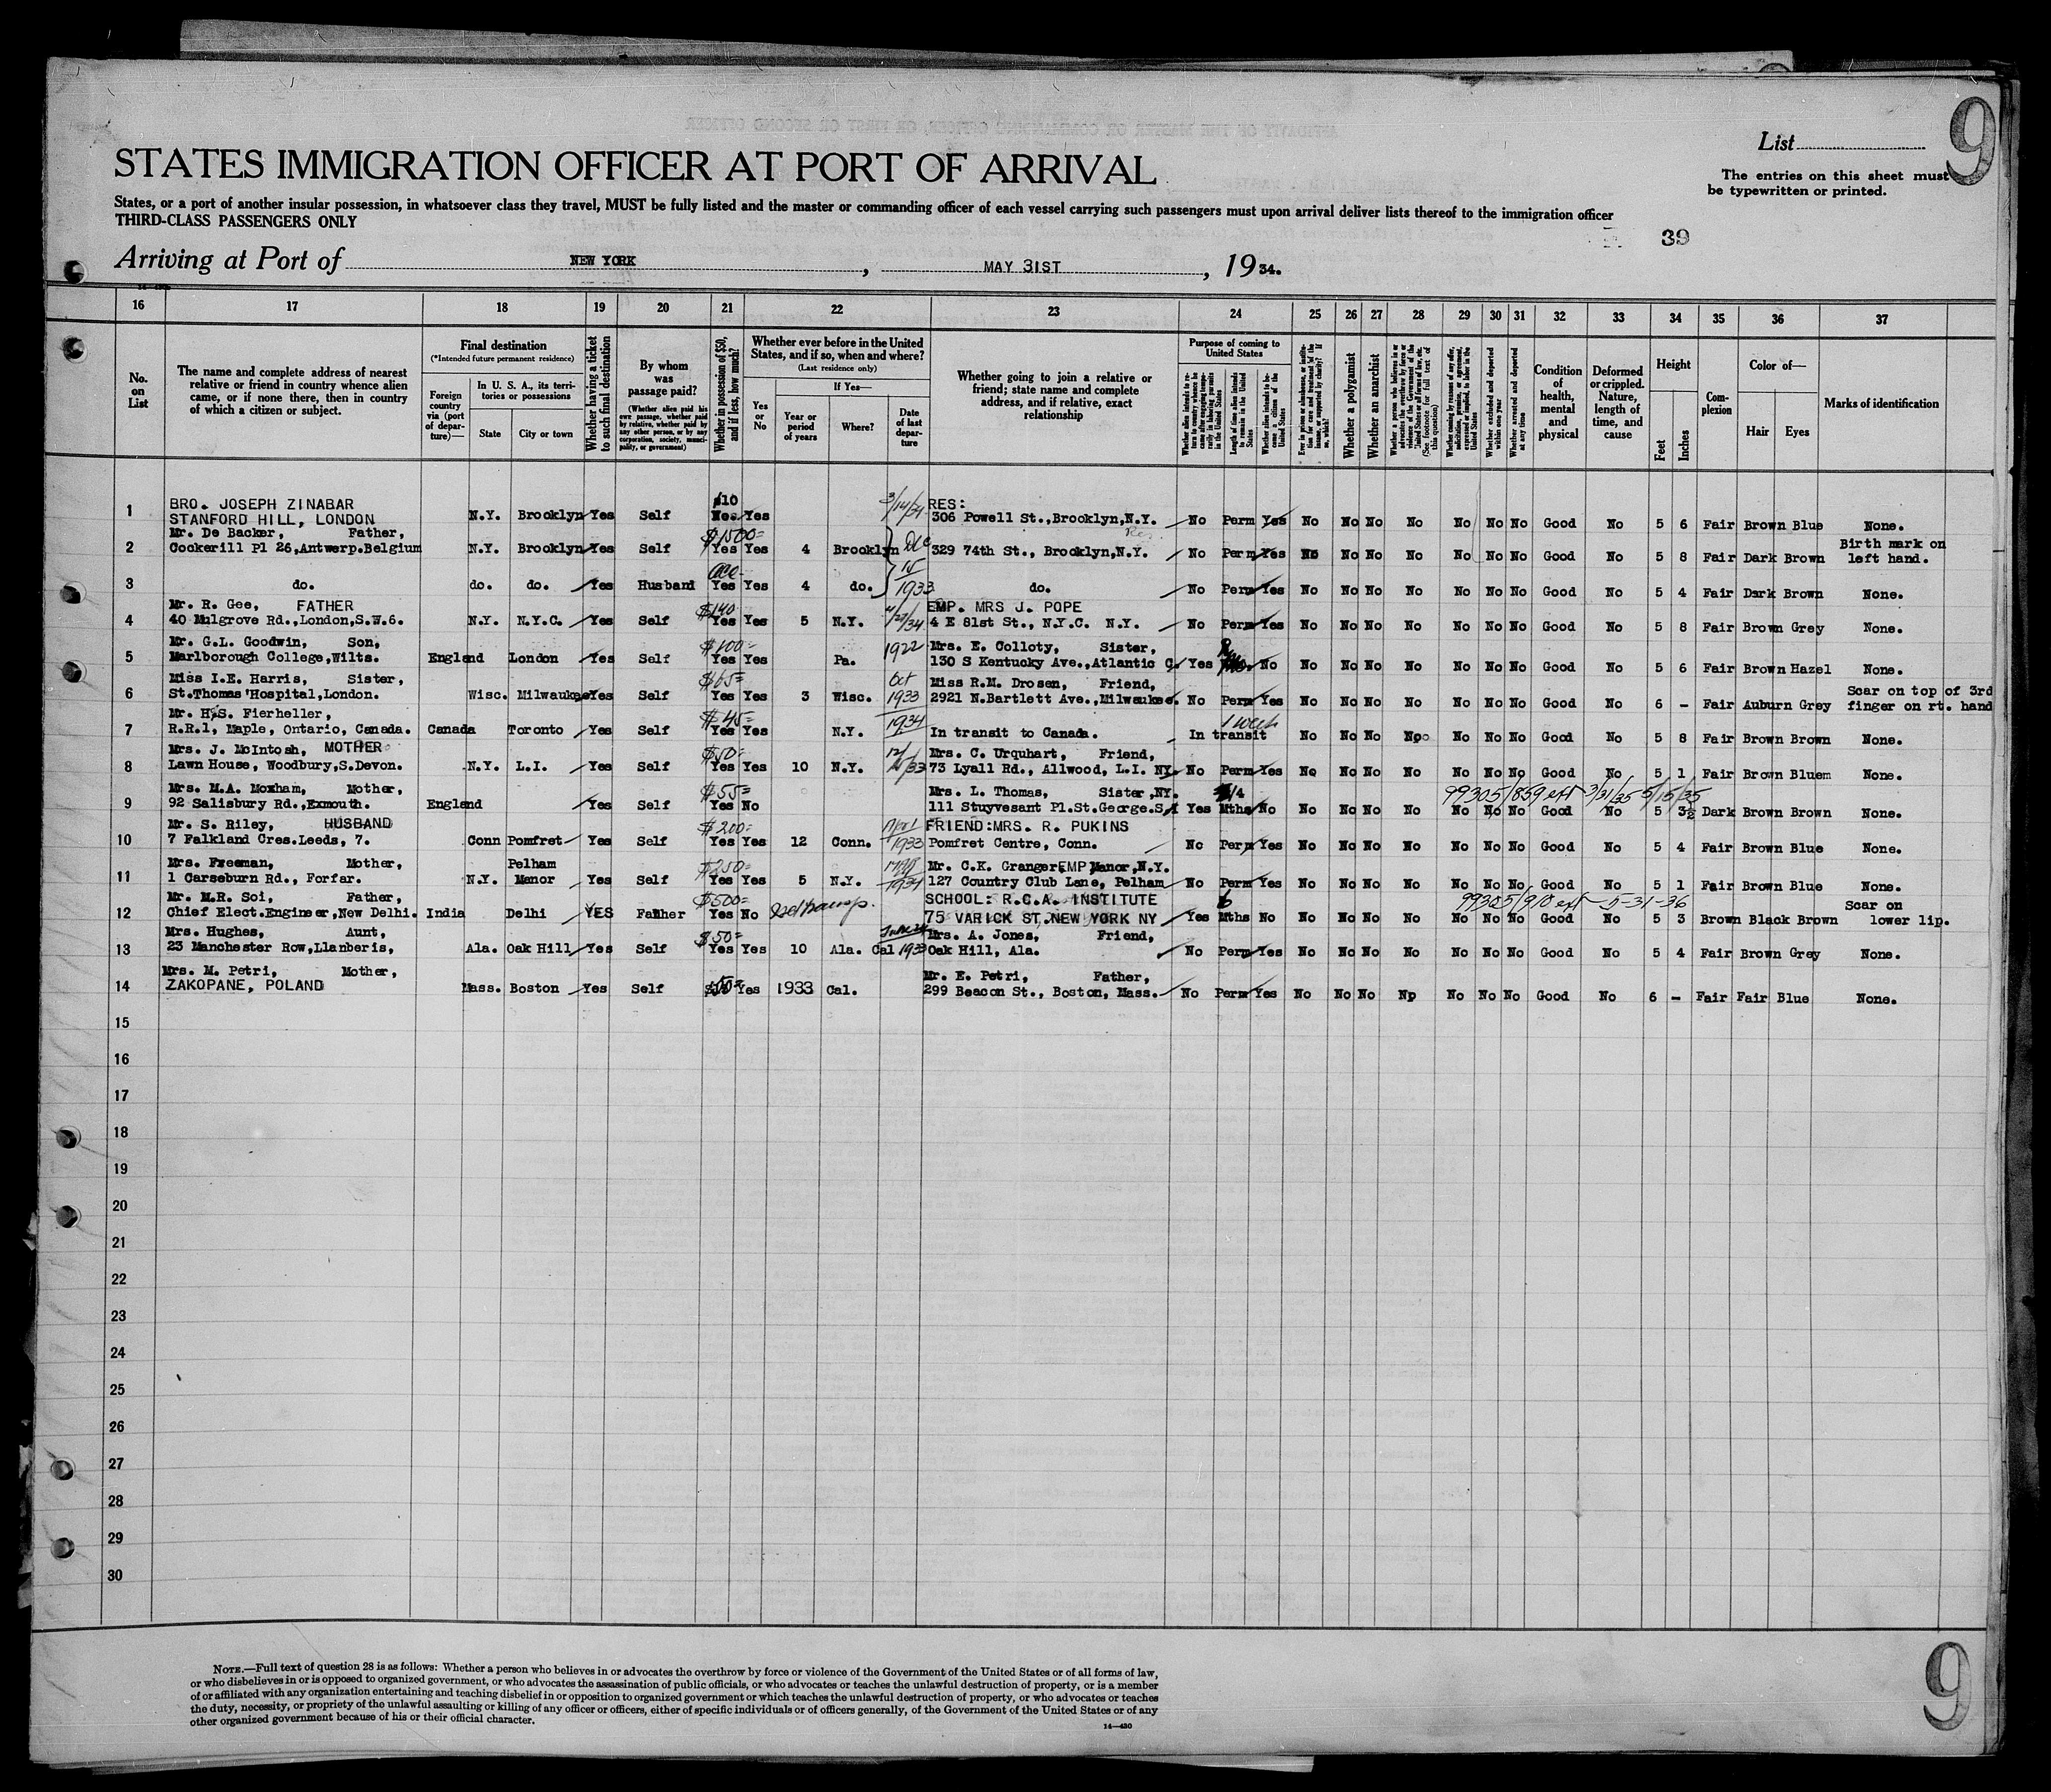 9
List
The entries on this sheet must
be typewritten or printed.
STATES IMMIGRATION OFFICER AT PORT OF ARRIVAL
States, or a port of another insular possession, in whatsoever class they travel, MUST be fully listed and the master or commanding officer of each vessel carrying such passengers must upon arrival deliver lists thereof to the immigration officer
THIRD-CLASS PASSENGERS ONLY
39
Arriving at Port of NEW YORK, MAY 31ST, 1934.
16 17 18 19 20 21 22 23 24 25 26 27 28 29 30 31 32 33 34 35 36 37
No. on List
The name and complete address of nearest
relative or friend in country whence alien
came, or if none there, then in country
of which a citizen or subject.
Final destination
(*Intended future permanent residence)
Foreign country via (port of departure)—
In U. S. A., its territories or possessions
State
City or town
Whether having a ticket to such final destination
By whom was passage paid?
(Whether alien paid his own passage, whether paid by relative, whether paid by any other person, or by any corporation, society, municipality, or government)
Whether in possession of $50, and if less, how much?
Whether ever before in the United States, and if so, when and where?
(Last residence only)
Yes or No
If Yes—
Year or period of years
Where?
Date of last departure
Whether going to join a relative or
friend; state name and complete
address, and if relative, exact
relationship
Purpose of coming to United States
Length of time alien intends to remain in the United States
Whether alien intends to become a citizen of the United States
Whether a polygamist
Whether an anarchist
Whether excluded and deported within one year
Whether arrested and deported at any time
Condition of health, mental and physical
Deformed or crippled. Nature, length of time, and cause
Height
Feet
Inches
Complexion
Color of—
Hair
Eyes
Marks of identification
BRO. JOSEPH ZINABAR $10 3/14/34 RES:
1 STANFORD HILL, LONDON N.Y. Brooklyn Yes Self Yes 306 Powell St.,Brooklyn,N.Y. No Perm Yes No No No No No No No Good No 5 6 Fair Brown Blue None.
Mr. De Backer, Father, $1500= Birth mark on
2 Cockerill Pl 26,Antwerp.Belgium N.Y. Brooklyn Yes Self Yes Yes 4 Brooklyn Dec 329 74th St., Brooklyn,N.Y. No Perm Yes No No No No No No No Good No 5 8 Fair Dark Brown left hand.
3 do. do. do. Yes Husband Yes Yes 4 do. 15 1933 do. No Perm Yes No No No No No No No Good No 5 4 Fair Dark Brown None.
Mr. R. Gee, FATHER $140 EMP. MRS J. POPE
4 40 Mulgrove Rd.,London,S.W.6. N.Y. N.Y.C. Yes Self Yes Yes 5 N.Y. 4 E 81st St., N.Y.C. N.Y. No Perm Yes No No No No No No No Good No 5 8 Fair Brown Grey None.
Mr. G.L. Goodwin, Son, $100= 1922 Mrs. E. Colloty, Sister,
5 Marlborough College,Wilts. England London Yes Self Yes Yes Pa. 130 S Kentucky Ave.,Atlantic C. Yes No No No No No No No No Good No 5 6 Fair Brown Hazel None.
Miss I.E. Harris, Sister, $65= Oct Miss R.M. Drosen, Friend, Scar on top of 3rd
6 St.Thomas'Hospital,London. Wisc. Milwaukee Yes Self Yes Yes 3 Wisc. 1933 2921 N.Bartlett Ave.,Milwaukee. No Perm Yes No No No No No No No Good No 6 - Fair Auburn Grey finger on rt. hand
Mr. H.S. Fierheller, $45= 1934 1 week
7 R.R.1, Maple, Ontario, Canada. Canada Toronto Yes Self Yes Yes N.Y. In transit to Canada. In transit No No No No No No No Good No 5 8 Fair Brown Brown None.
Mrs. J. McIntosh, MOTHER $50= Mrs. C. Urquhart, Friend,
8 Lawn House, Woodbury,S.Devon. N.Y. L.I. Yes Self Yes Yes 10 N.Y. 73 Lyall Rd., Allwood, L.I. NY. No Perm Yes No No No No No No No Good No 5 1 Fair Brown Bluem None.
Mrs. M.A. Moxham, Mother, $55= Mrs. L. Thomas, Sister,NY. 4 99305/859 ext 3/31/35 5/15/35
9 92 Salisbury Rd.,Exmouth. England Yes Self Yes No 111 Stuyvesant Pl.St.George.S.I Yes Mths No No No No No No No No Good No 5 3½ Dark Brown Brown None.
Mr. S. Riley, HUSBAND $200= FRIEND:MRS. R. PUKINS
10 7 Falkland Cres.Leeds, 7. Conn Pomfret Yes Self Yes Yes 12 Conn. 1933 Pomfret Centre, Conn. No Perm Yes No No No No No No No Good No 5 4 Fair Brown Blue None.
Mrs. Freeman, Mother, Pelham $250= Mr. C.K. Granger,EMP Manor,N.Y.
11 1 Carseburn Rd., Forfar. N.Y. Manor Yes Self Yes Yes 5 N.Y. 1934 127 Country Club Lane, Pelham No Perm Yes No No No No No No No Good No 5 1 Fair Brown Blue None.
Mr. M.R. Soi, Father, $500= SCHOOL: R.C.A. INSTITUTE 6 99305/910 ext 5-31-36 Scar on
12 Chief Elect.Engineer,New Delhi. India Delhi YES Father Yes No 75 VARICK ST,NEW YORK NY Yes Mths No No No No No No No No Good No 5 3 Brown Black Brown lower lip.
Mrs. Hughes, Aunt, $50= Mrs. A. Jones, Friend,
13 23 Manchester Row,Llanberis, Ala. Oak Hill Yes Self Yes Yes 10 Ala. Cal 1933 Oak Hill, Ala. No Perm Yes No No No No No No No Good No 5 4 Fair Brown Grey None.
Mrs. M. Petri, Mother, Mr. E. Petri, Father,
14 ZAKOPANE, POLAND Mass. Boston Yes Self Yes 1933 Cal. 299 Beacon St., Boston, Mass. No Perm Yes No No No No No No No Good No 6 - Fair Fair Blue None.
15
16
17
18
19
20
21
22
23
24
25
26
27
28
29
30
NOTE.—Full text of question 28 is as follows: Whether a person who believes in or advocates the overthrow by force or violence of the Government of the United States or of all forms of law,
or who disbelieves in or is opposed to organized government, or who advocates the assassination of public officials, or who advocates or teaches the unlawful destruction of property, or is a member
of or affiliated with any organization entertaining and teaching disbelief in or opposition to organized government or which teaches the unlawful destruction of property, or who advocates or teaches
the duty, necessity, or propriety of the unlawful assaulting or killing of any officer or officers, either of specific individuals or of officers generally, of the Government of the United States or of any
other organized government because of his or their official character.
14—430
9